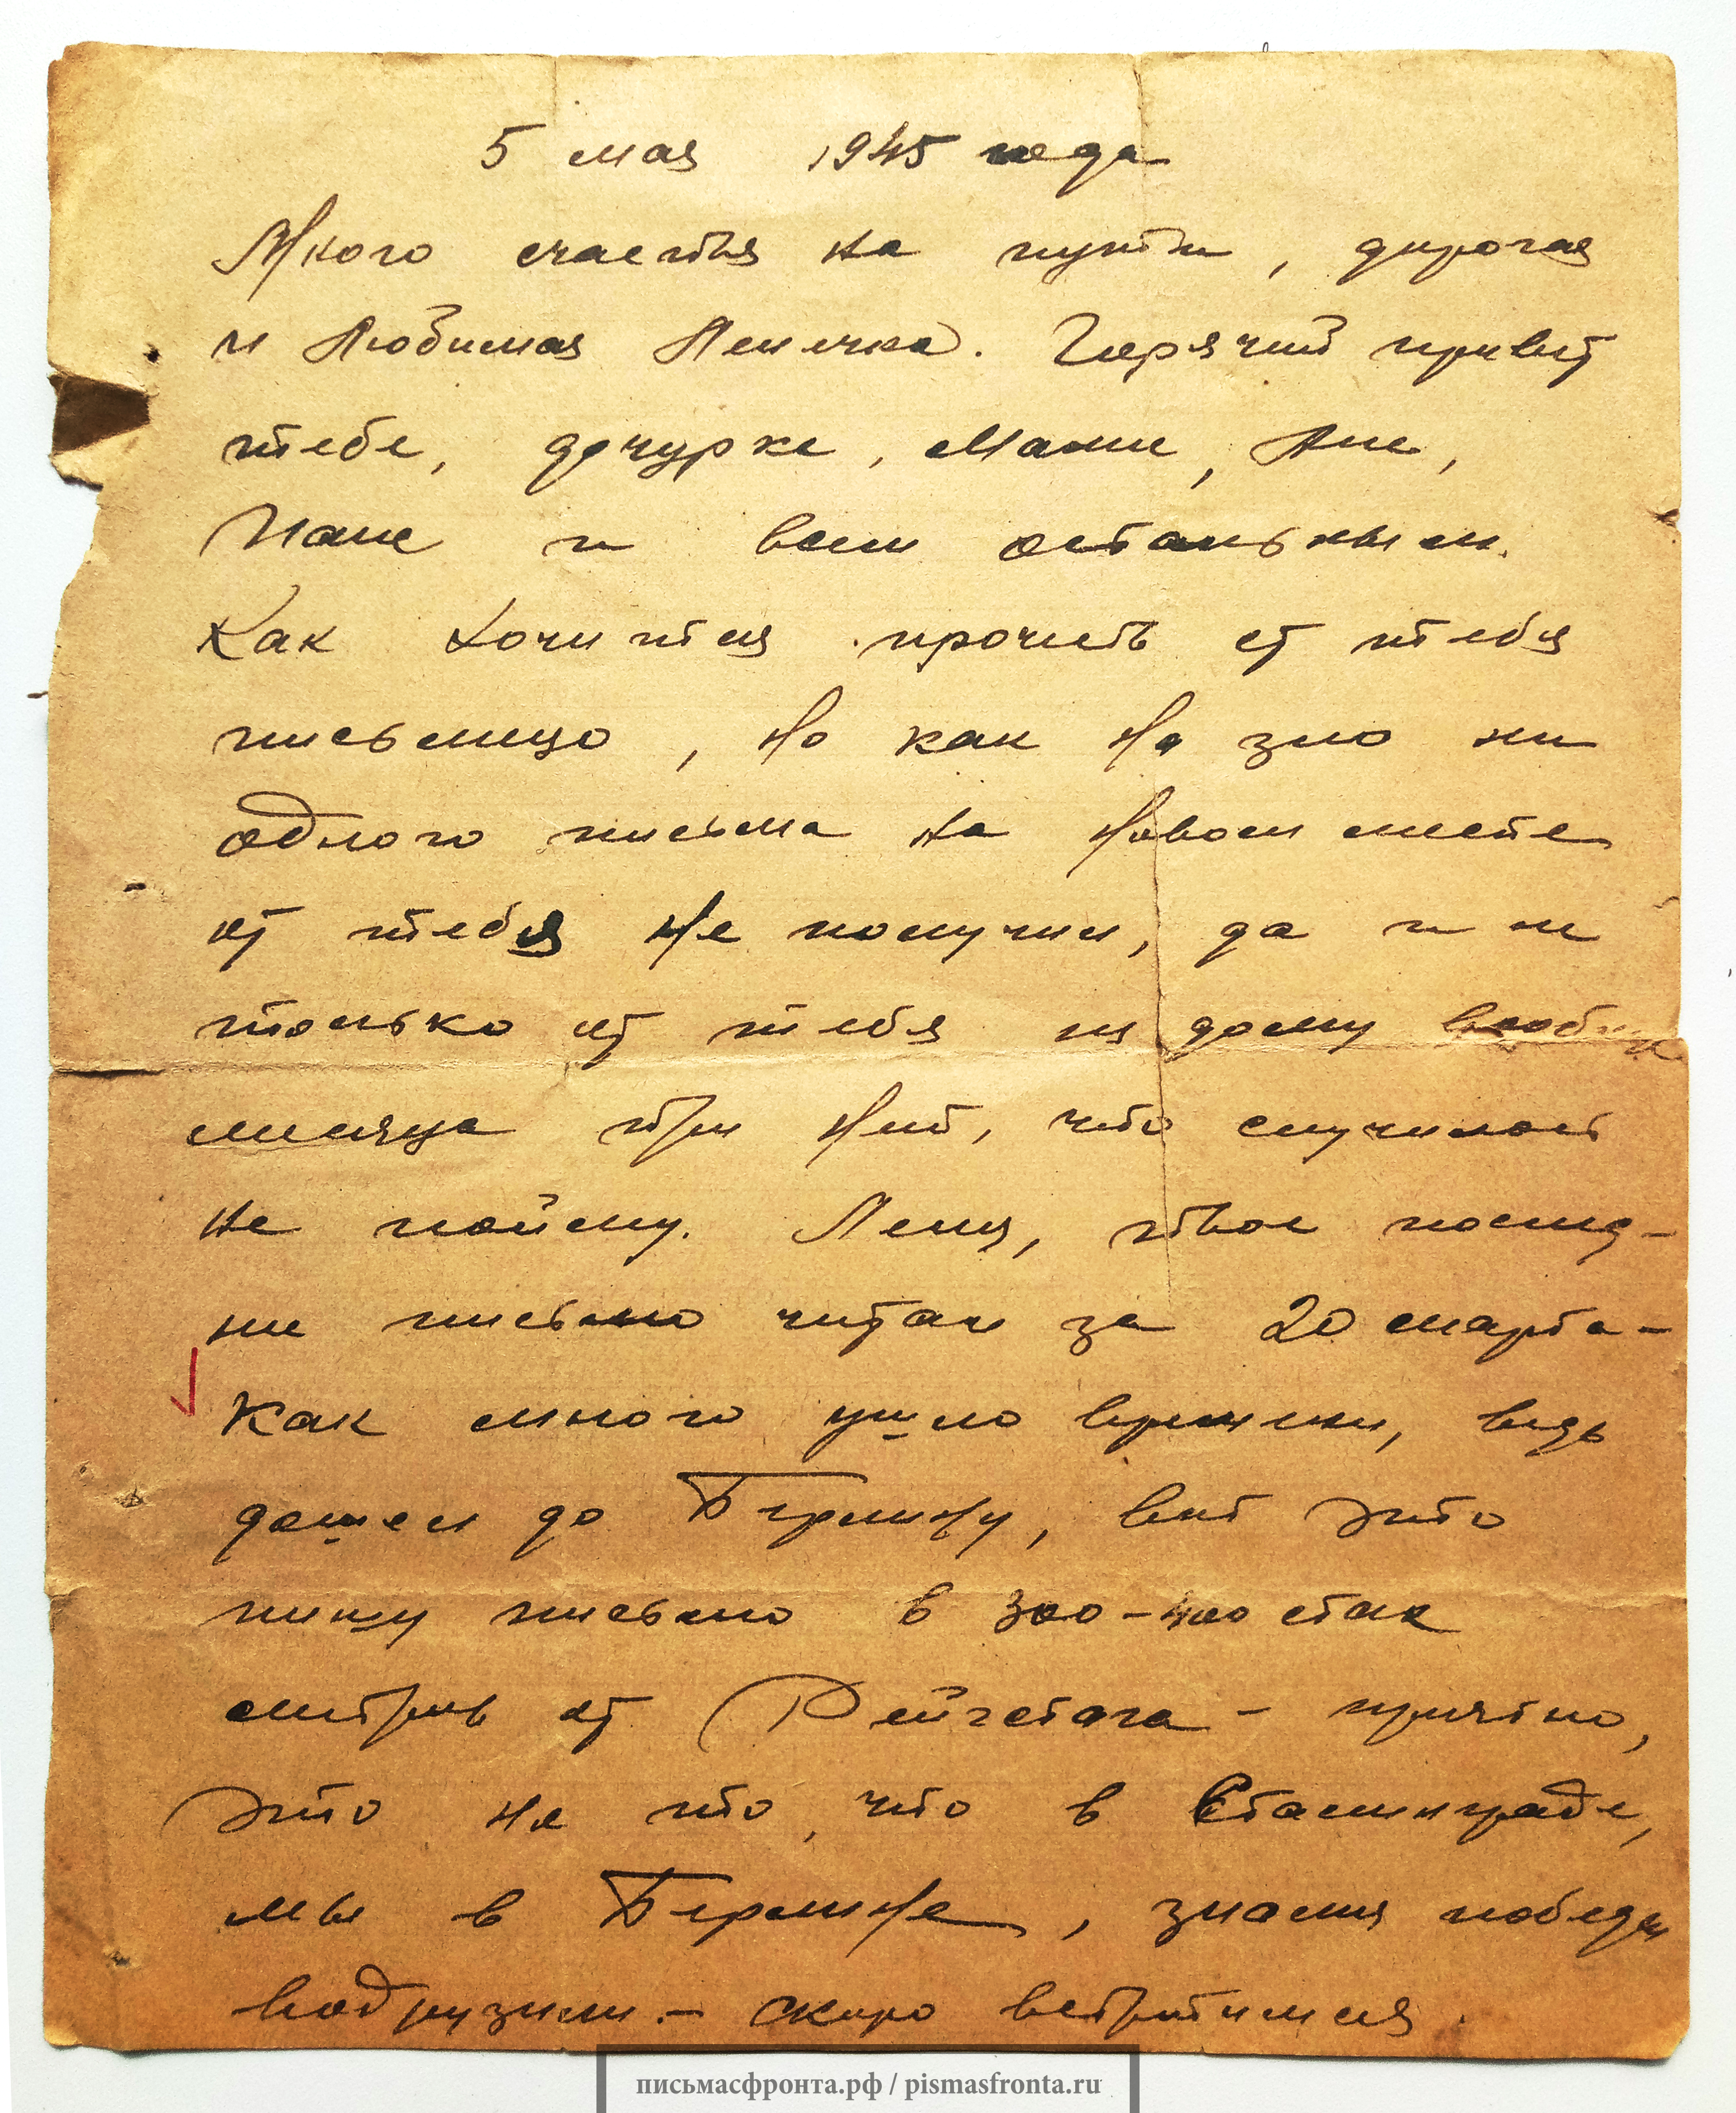 5 мая 1945 года
Много счастья на пути, дорогая
и Любимая Леночка. Горячий привет
тебе, дочурке, Маме, Ане,
Пане и всем остальным.
Как хочется прочесть от тебя
письмецо, но как на зло ни
одного письма на новом месте
от тебя не получил, да и не
только от тебя из дому вообще
месяца три нет, что случилось
не пойму. Леня, твое послед-
нее письмо читал за 20 марта -
Как много ушло времени, ведь
дошел до Берлину, вот это
пишу письмо в 300-400 стах
метров от Рейхстага - приятно,
Это не то, что в Сталинграде,
мы в Берлине, знамя победы
водрузили. - скоро встретимся.
письмасфронта.рф / pismasfronta.ru